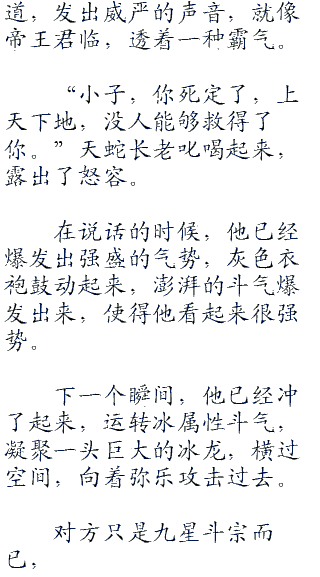 道，发出威严的声音，就像
帝王君临，透着一种霸气。
“小子，你死定了，上
天下地，没人能够救得了
你。”天蛇长老叱喝起来，
露出了怒容。
在说话的时候，他已经
爆发出强盛的气势，灰色衣
袍鼓动起来，澎湃的斗气爆
发出来，使得他看起来很强
势。
下一个瞬间，他已经冲
了起来，运转冰属性斗气，
凝聚一头巨大的冰龙，横过
空间，向着弥乐攻击过去。
对方只是九星斗宗而
已，